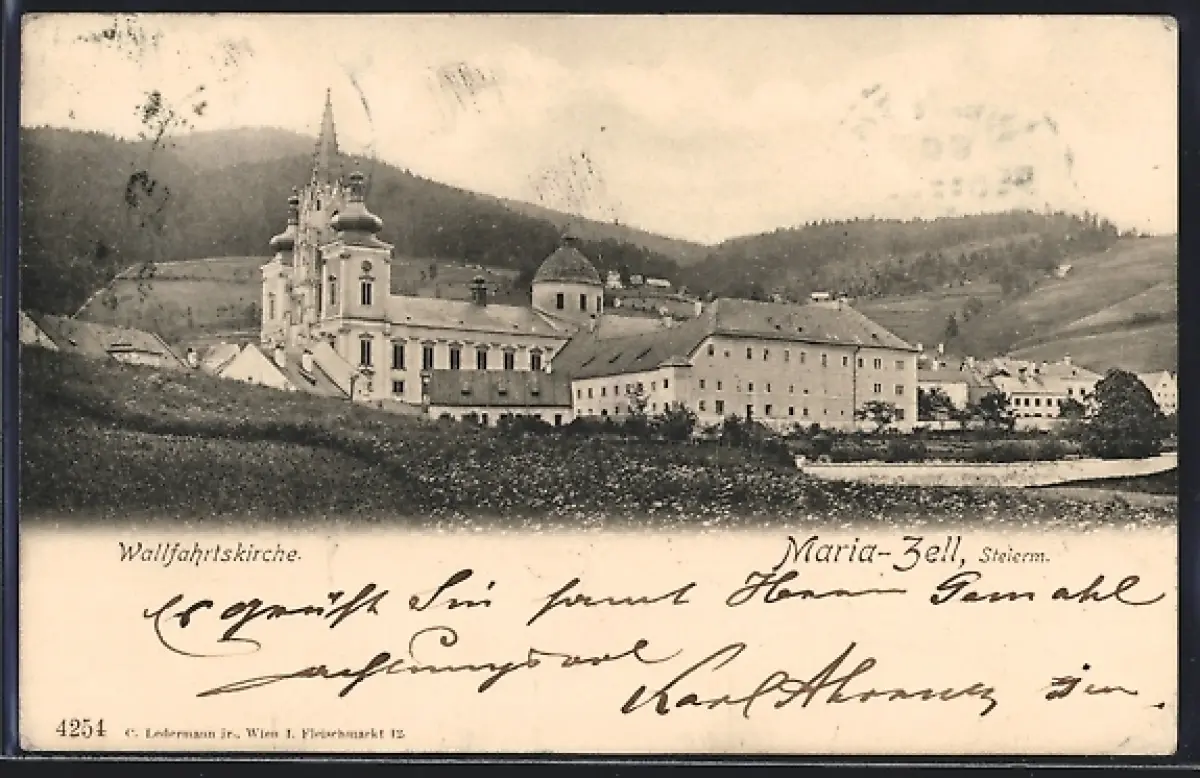 Wallfahrtskirche.
Maria-Zell, Steierm.
Es grüßt Sie samt Herrn Gemahl
achtungsvoll
Karl
4254 C. Ledermann jr., Wien I. Fleischmarkt 12.